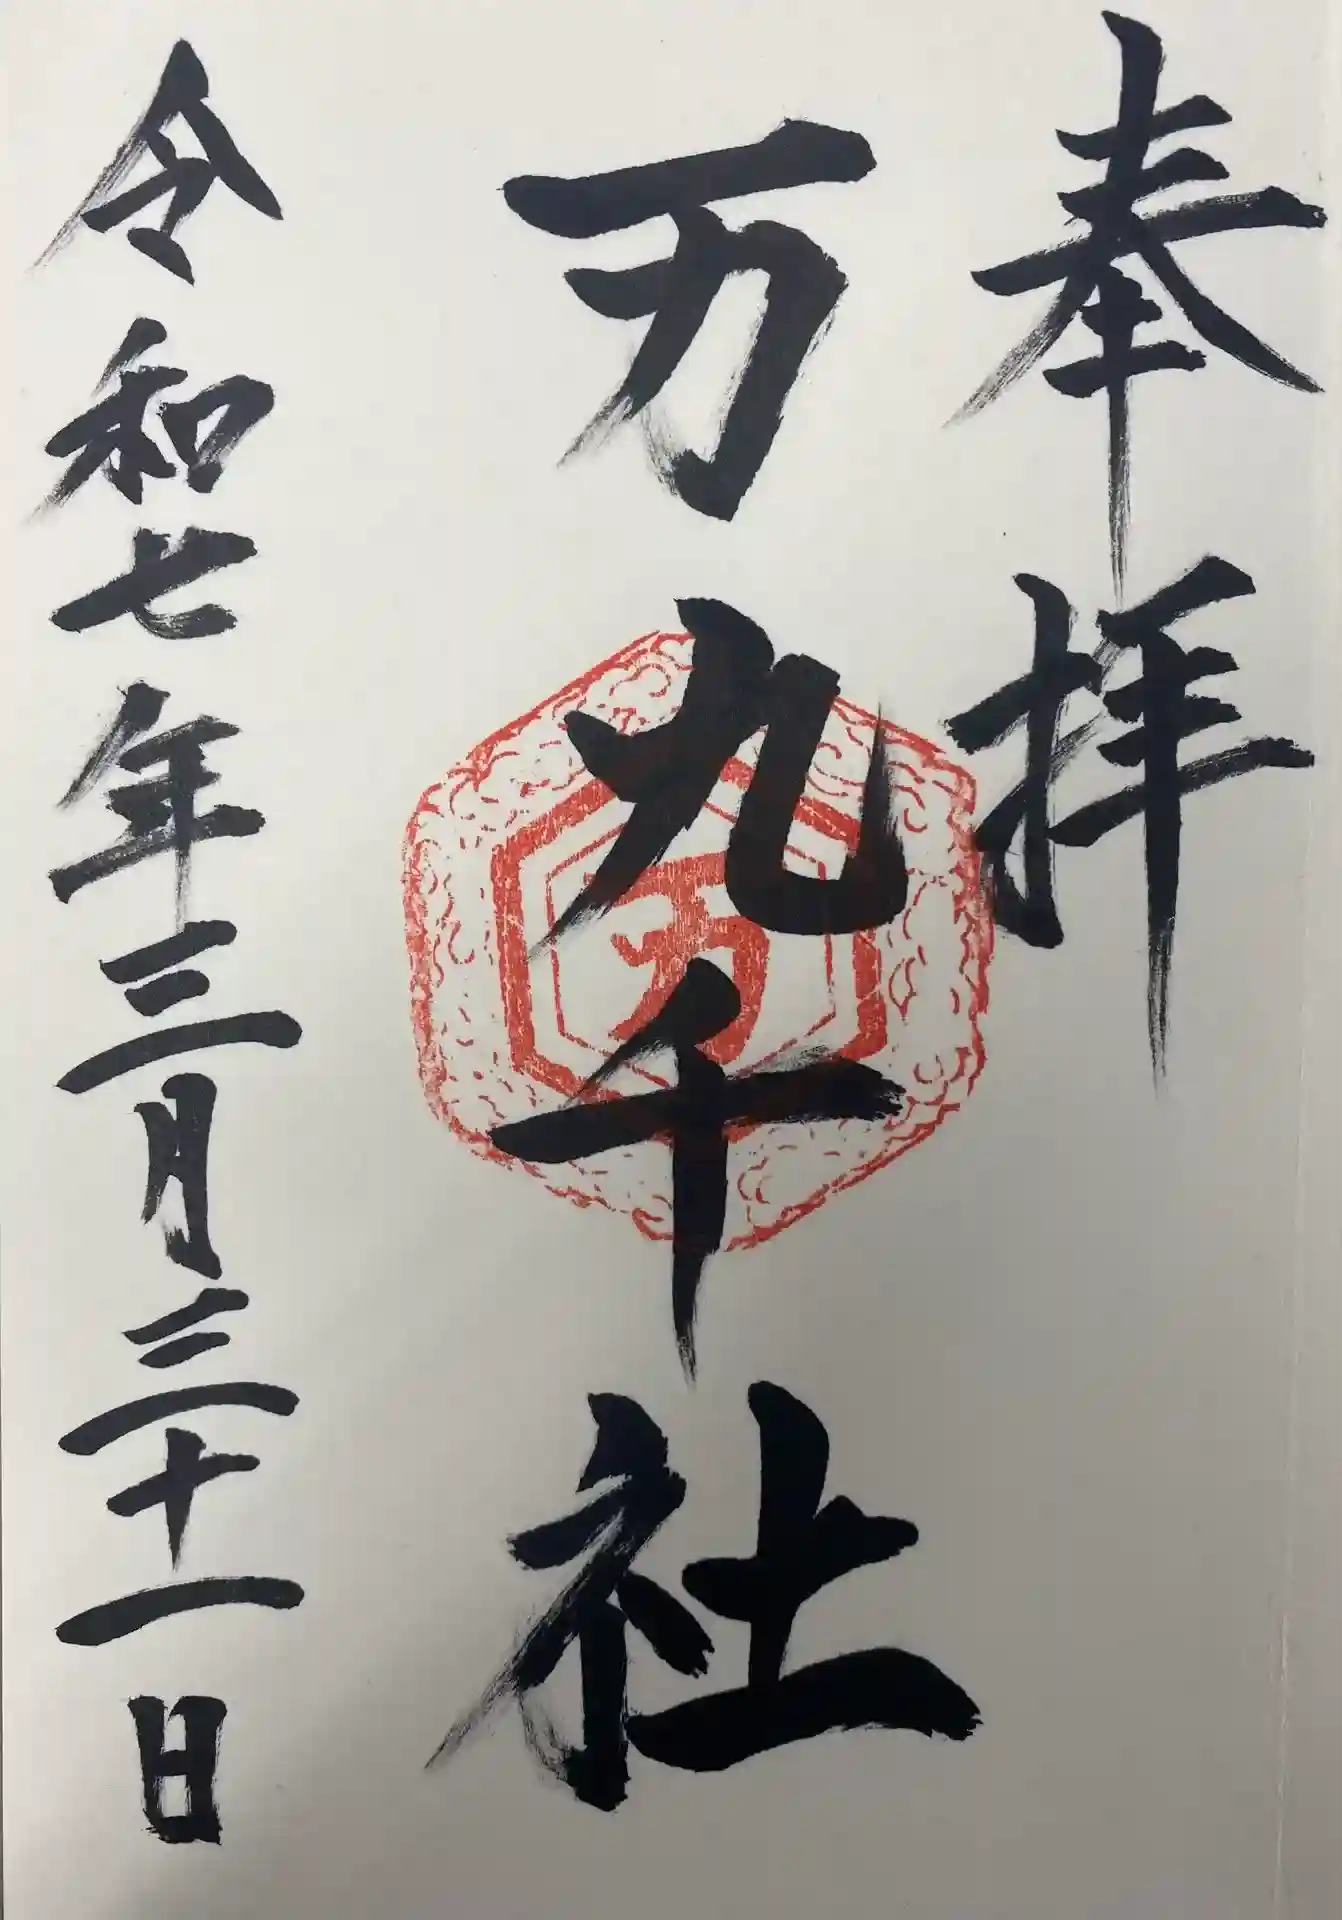 奉拝
万九千社
万
令和七年三月三十一日